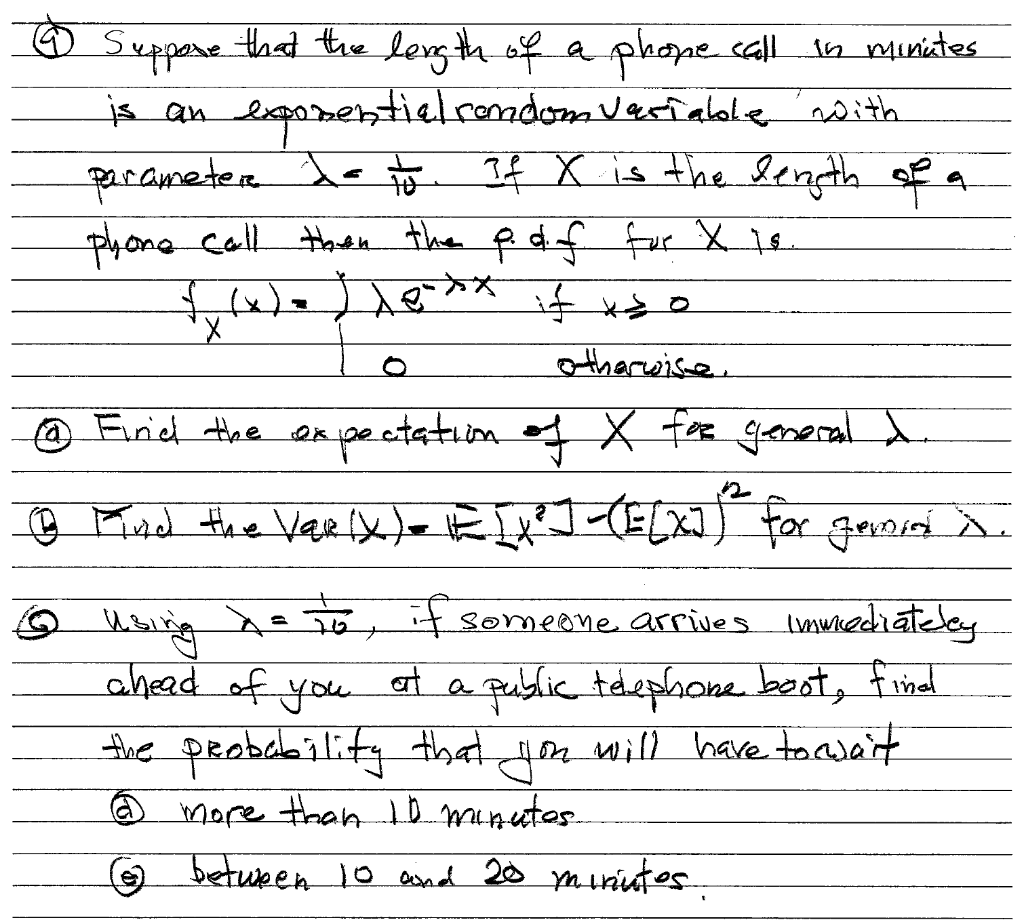 ⑨ Suppose that the length of a phone call in minutes
is an exponential random variable with
parameter λ = 1/10. If X is the length of a
phone call then the p.d.f for X is.
f_X(x) = { λe^{-λx} if x ≥ 0
0 otherwise.
ⓐ Find the expectation of X for general λ.
ⓑ Find the Var(X) = E[X²] - (E[X])² for general λ.
ⓒ Using λ = 1/10, if someone arrives immediateley
ahead of you at a public telephone boot, find
the probability that you will have to wait
ⓓ more than 10 minutes
ⓔ between 10 and 20 minutes.